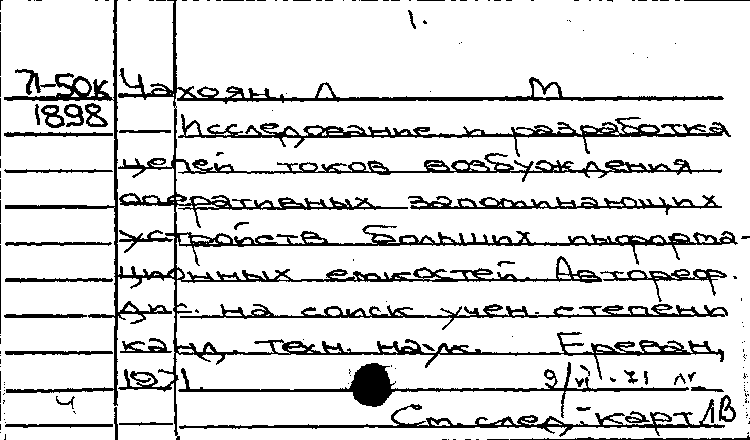 1.
71-50к Чахоян, Л М
1898 Исследование и разработка
цепей токов возбуждения
оперативных запоминающих
устройств больших информа-
ционных емкостей. Автореф.
дис. на соиск учен. степени
канд. техн. наук. Ереван,
1971.
ч Ст. след. карт